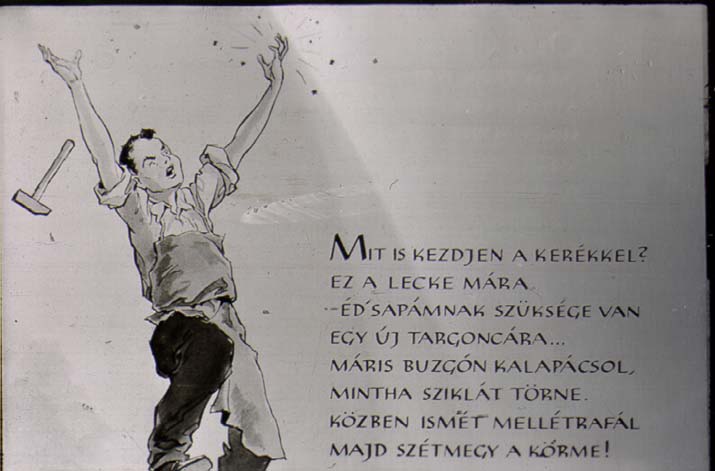 MIT IS KEZDJEN A KERÉKKEL?
EZ A LECKE MÁRA.
-ÉD'SAPÁMNAK SZÜKSÉGE VAN
EGY ÚJ TARGONCÁRA...
MÁRIS BUZGÓN KALAPÁCSOL,
MINTHA SZIKLÁT TÖRNE.
KÖZBEN ISMÉT MELLÉTRAFÁL
MAJD SZÉTMEGY A KÖRME!